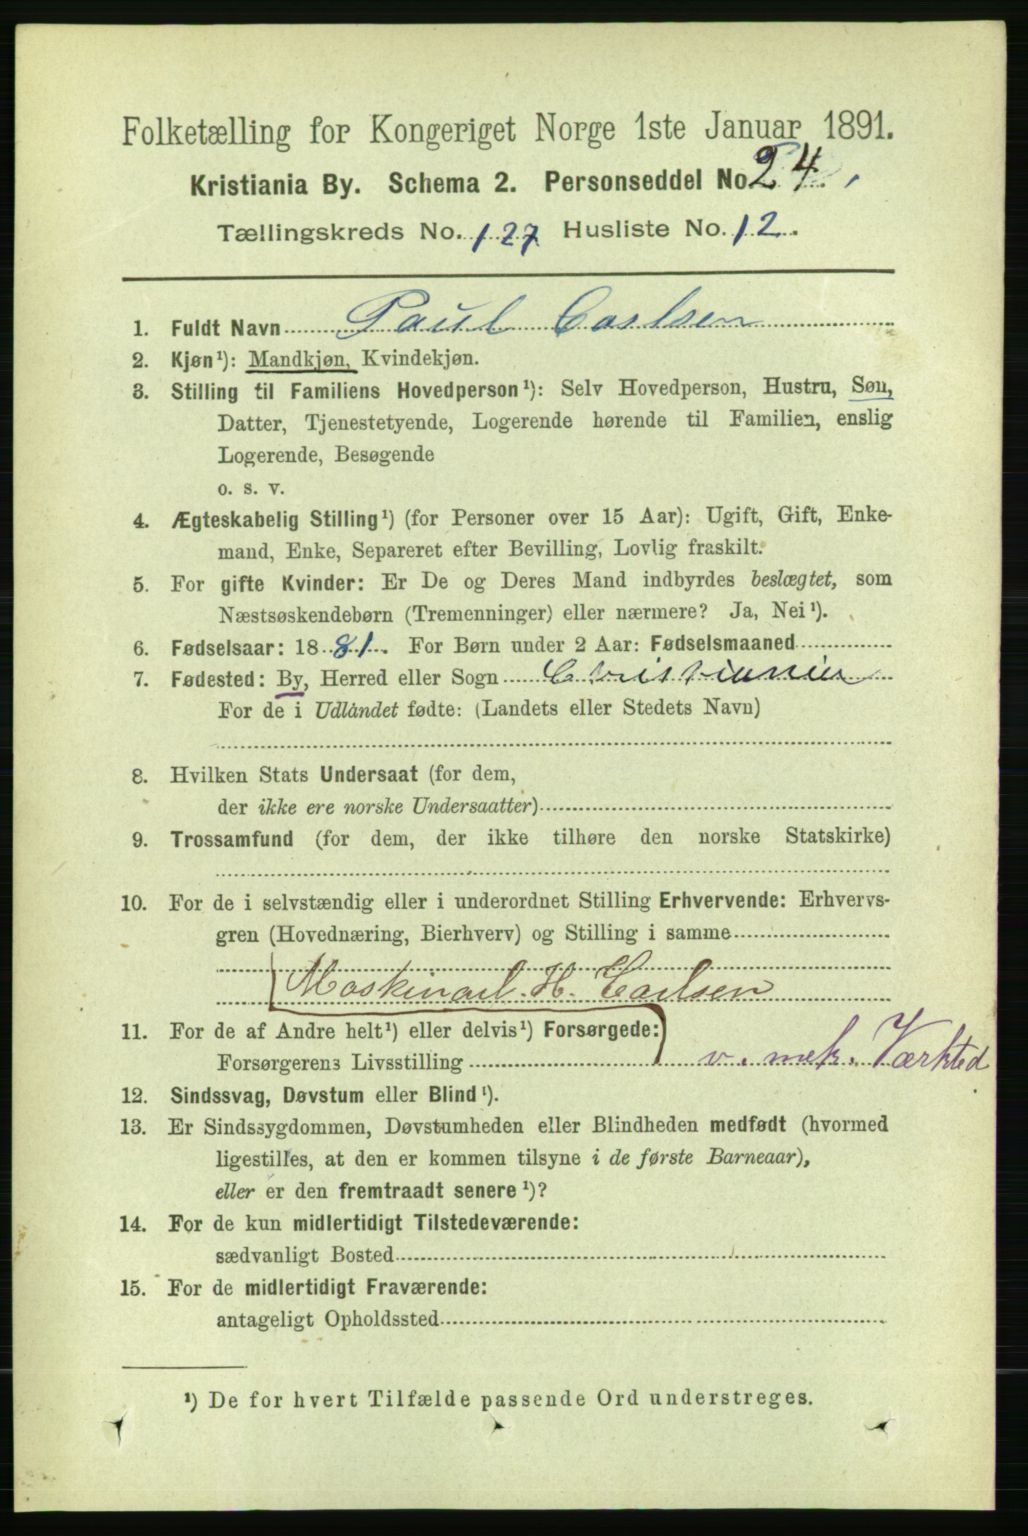 Folketælling for Kongeriget Norge 1ste Januar 1891.
Kristiania By. Schema 2. Personseddel No. 24.
Tællingskreds No. 127 Husliste No. 12.
1. Fuldt Navn Paul Carlsen
2. Kjøn¹): Mandkjøn, Kvindekjøn.
3. Stilling til Familiens Hovedperson¹): Selv Hovedperson, Hustru, Søn,
Datter, Tjenestetyende, Logerende hørende til Familien, enslig
Logerende, Besøgende
o. s. v.
4. Ægteskabelig Stilling¹) (for Personer over 15 Aar): Ugift, Gift, Enke-
mand, Enke, Separeret efter Bevilling, Lovlig fraskilt.
5. For gifte Kvinder: Er De og Deres Mand indbyrdes beslægtet, som
Næstsøskendebørn (Tremenninger) eller nærmere? Ja, Nei¹).
6. Fødselsaar: 1881. For Børn under 2 Aar: Fødselsmaaned
7. Fødested: By, Herred eller Sogn Christiania
For de i Udlandet fødte: (Landets eller Stedets Navn)
8. Hvilken Stats Undersaat (for dem,
der ikke ere norske Undersaatter)
9. Trossamfund (for dem, der ikke tilhøre den norske Statskirke)
10. For de i selvstændig eller i underordnet Stilling Erhvervende: Erhvervs-
gren (Hovednæring, Bierhverv) og Stilling i samme
Maskinarb. H. Carlsen
11. For de af Andre helt¹) eller delvis¹) Forsørgede:
Forsørgerens Livsstilling v. mek. Værksted
12. Sindssvag, Døvstum eller Blind¹).
13. Er Sindssygdommen, Døvstumheden eller Blindheden medfødt (hvormed
ligestilles, at den er kommen tilsyne i de første Barneaar),
eller er den fremtraadt senere¹)?
14. For de kun midlertidigt Tilstedeværende:
sædvanligt Bosted
15. For de midlertidigt Fraværende:
antageligt Opholdssted
¹) De for hvert Tilfælde passende Ord understreges.